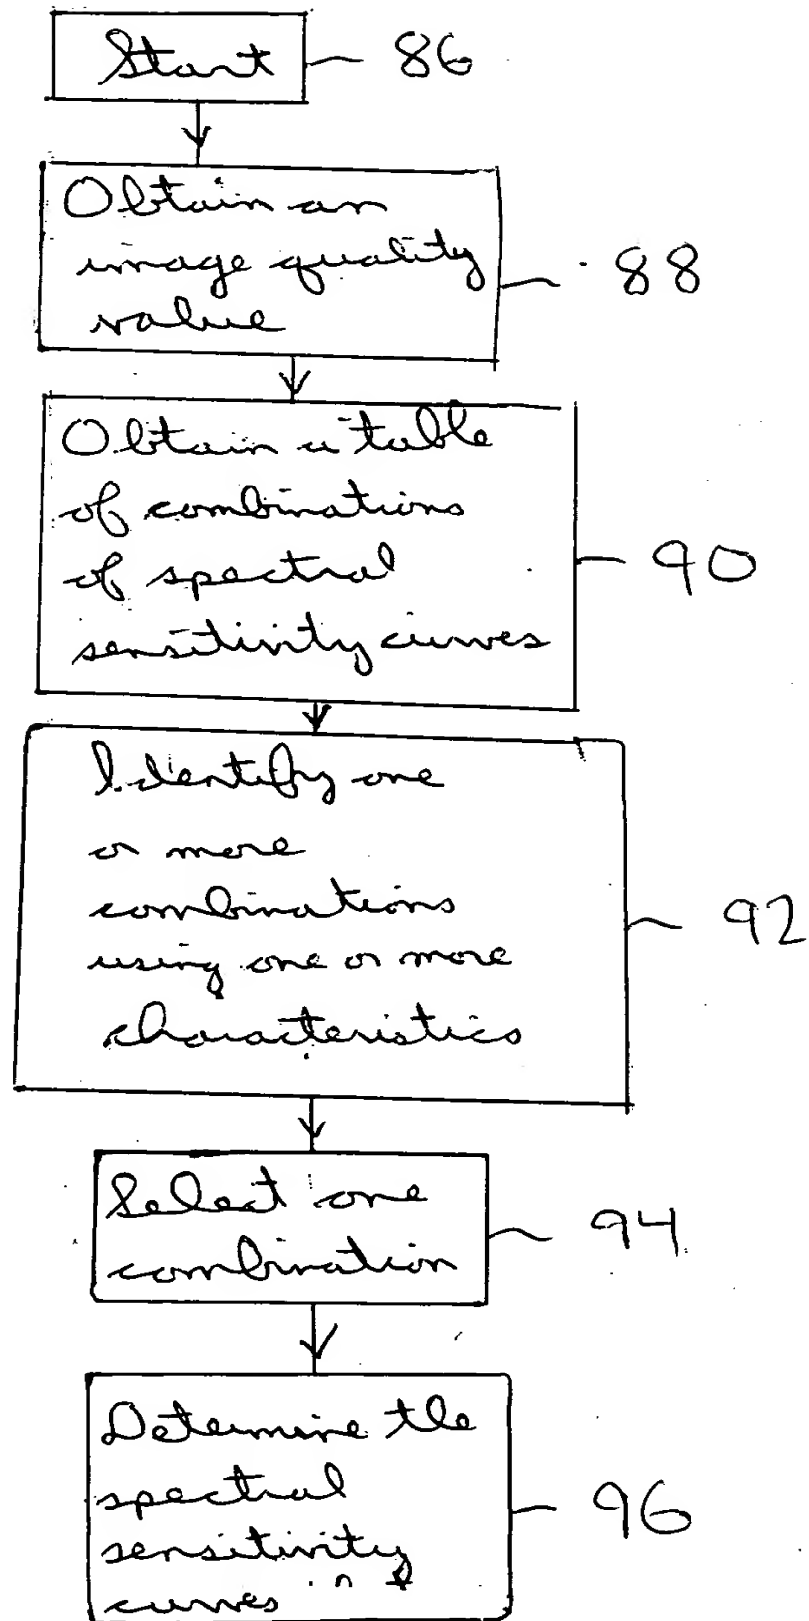 Start 86
Obtain an
image quality
value
88
Obtain a table
of combinations
of spectral
sensitivity curves
90
Identify one
or more
combinations
using one or more
characteristics
92
Select one
combination
94
Determine the
spectral
sensitivity
curves in
96